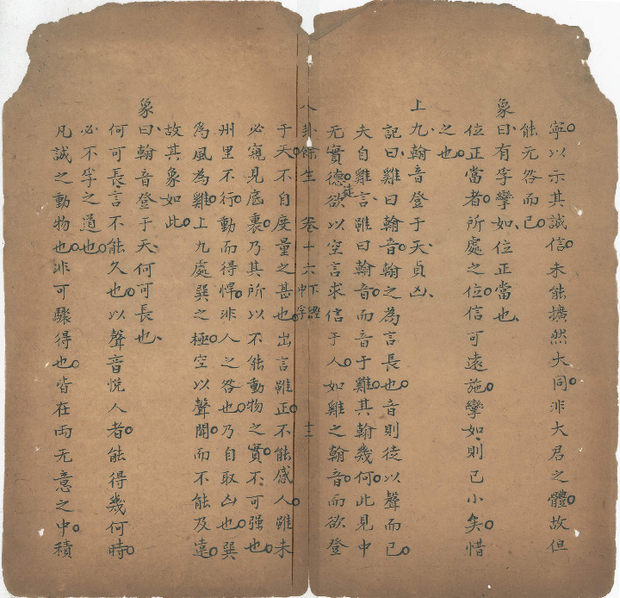 寧以示其誠信未能擴然大同非大君之體故但
能无咎而已
象曰有孚攣如位正當也
位正當者所處之位信可遠施攣如則已小矣惜
之也
上九翰音登于天貞凶
記曰雞曰翰音翰之為言長也音則徒以聲而已
夫自雞言雖曰翰音而音于雞其翰幾何此見中
无實德徒欲以空言求信于人如雞之翰音而欲登
八卦餘生 卷十六 下經 中孚 十二
于天不自度量之甚也出言雖正不能感人雖未
必窺見底裏乃其所以不能動物之實不可強也
州里不行動而得悍非人之咎也乃自取凶也巽
為風為雞上九處巽之極空以聲聞而不能及遠
故其象如此
象曰翰音登于天何可長也
何可長言不能久也以聲音悅人者能得幾何時
必不孚之道也
凡誠之動物也非可驟得也皆在兩无意之中積